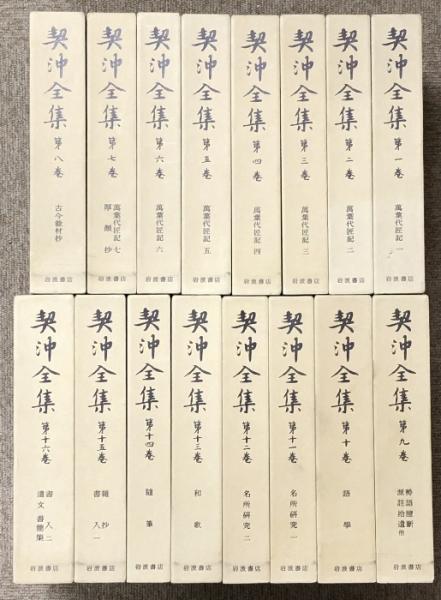 契沖全集 第一巻 萬葉代匠記 一 岩波書店
契沖全集 第二巻 萬葉代匠記 二 岩波書店
契沖全集 第三巻 萬葉代匠記 三 岩波書店
契沖全集 第四巻 萬葉代匠記 四 岩波書店
契沖全集 第五巻 萬葉代匠記 五 岩波書店
契沖全集 第六巻 萬葉代匠記 六 岩波書店
契沖全集 第七巻 萬葉代匠記 七
厚顔抄 岩波書店
契沖全集 第八巻 古今餘材抄 岩波書店
契沖全集 第九巻 勢語臆斷
源註拾遺 他 岩波書店
契沖全集 第十巻 語學 岩波書店
契沖全集 第十一巻 名所研究 一 岩波書店
契沖全集 第十二巻 名所研究 二 岩波書店
契沖全集 第十三巻 和歌 岩波書店
契沖全集 第十四巻 隨筆 岩波書店
契沖全集 第十五巻 雜抄
書入 一 岩波書店
契沖全集 第十六巻 書入 二
遺文 書簡集 岩波書店